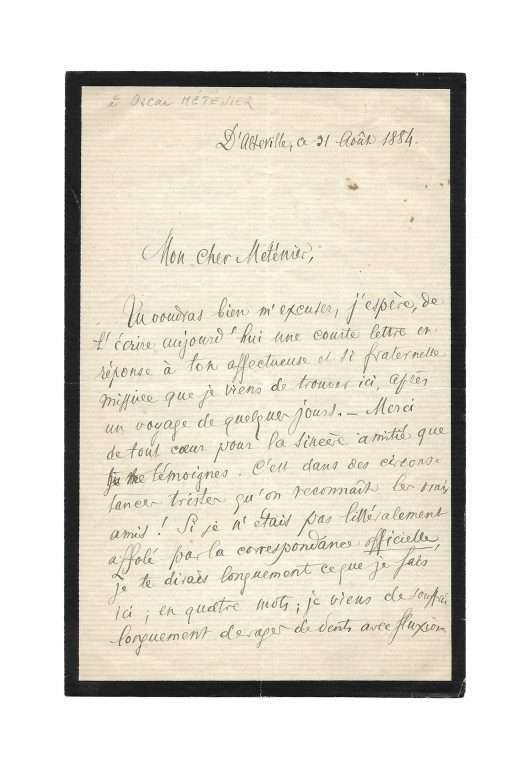 à Oscar MÉTÉNIER
D'Atteville, ce 31 Août 1884.
Mon cher Meténier,
Tu voudras bien m'excuser, j'espère, de
t'écrire aujourd'hui une courte lettre en
réponse à ton affectueuse et si fraternelle
missive que je viens de trouver ici, après
un voyage de quelques jours. — Merci
de tout cœur pour la sincère amitié que
tu me témoignes. C'est dans des circons-
tances tristes qu'on reconnaît les vrais
amis! Si je n'étais pas littéralement
affolé par la correspondance officielle,
je te dirais longuement ce que je fais
ici; en quatre mots; je viens de souffrir
longuement de rages de dents avec fluxion